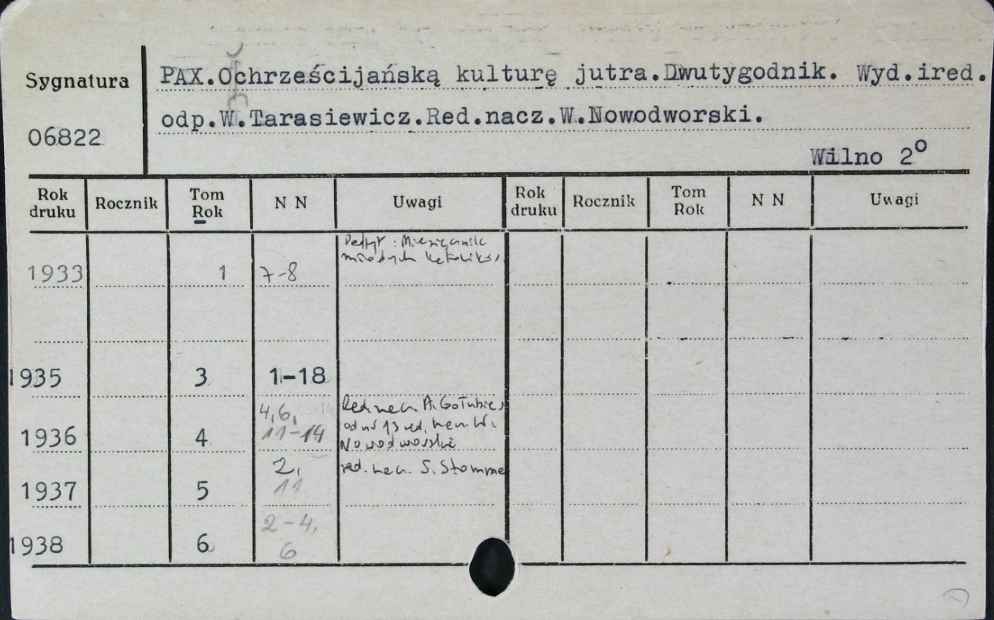 Sygnatura
06822
PAX.Ochrześcijańską kulturę jutra.Dwutygodnik. Wyd.ired.
odp.W.Tarasiewicz.Red.nacz.W.Nowodworski.
Wilno 2°
Rok druku Rocznik Tom Rok N N Uwagi Rok druku Rocznik Tom Rok N N Uwagi
1933 1 7-8
młodych
1935 3 1-18
1936 4 4,6, 11-14
od nr 13 red.
Nowodworski
1937 5 2, 11 red. S. Stomma
1938 6 2-4, 6